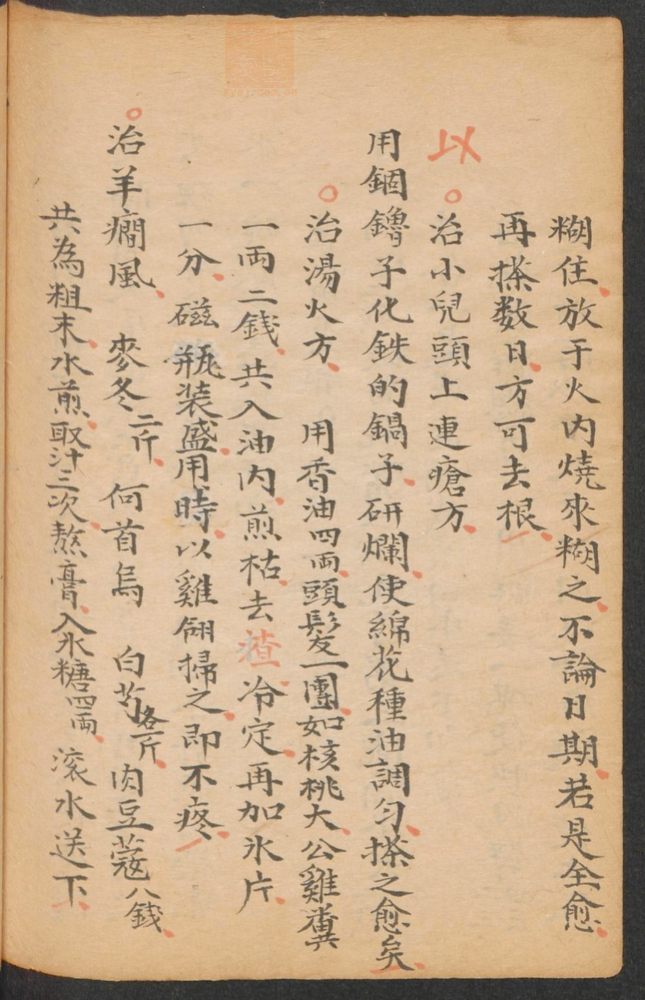 糊住放于火內燒來糊之不論日期若是全愈
再搽数日方可去根
以 治小兒頭上連瘡方
用錮鏀子化鉄的鍋子研爛使綿花種油調匀搽之愈矣
治湯火方 用香油四両頭髮一團如核桃大公雞糞
一両二錢共入油內煎枯去渣冷定再加氷片
一分磁瓶装盛用時以雞翎掃之即不疼
治羊癎風 麥冬二斤 何首烏 白芍各一斤 肉豆蔻八錢
共為粗末水煎取汁三次熬膏入氷糖四両 滾水送下